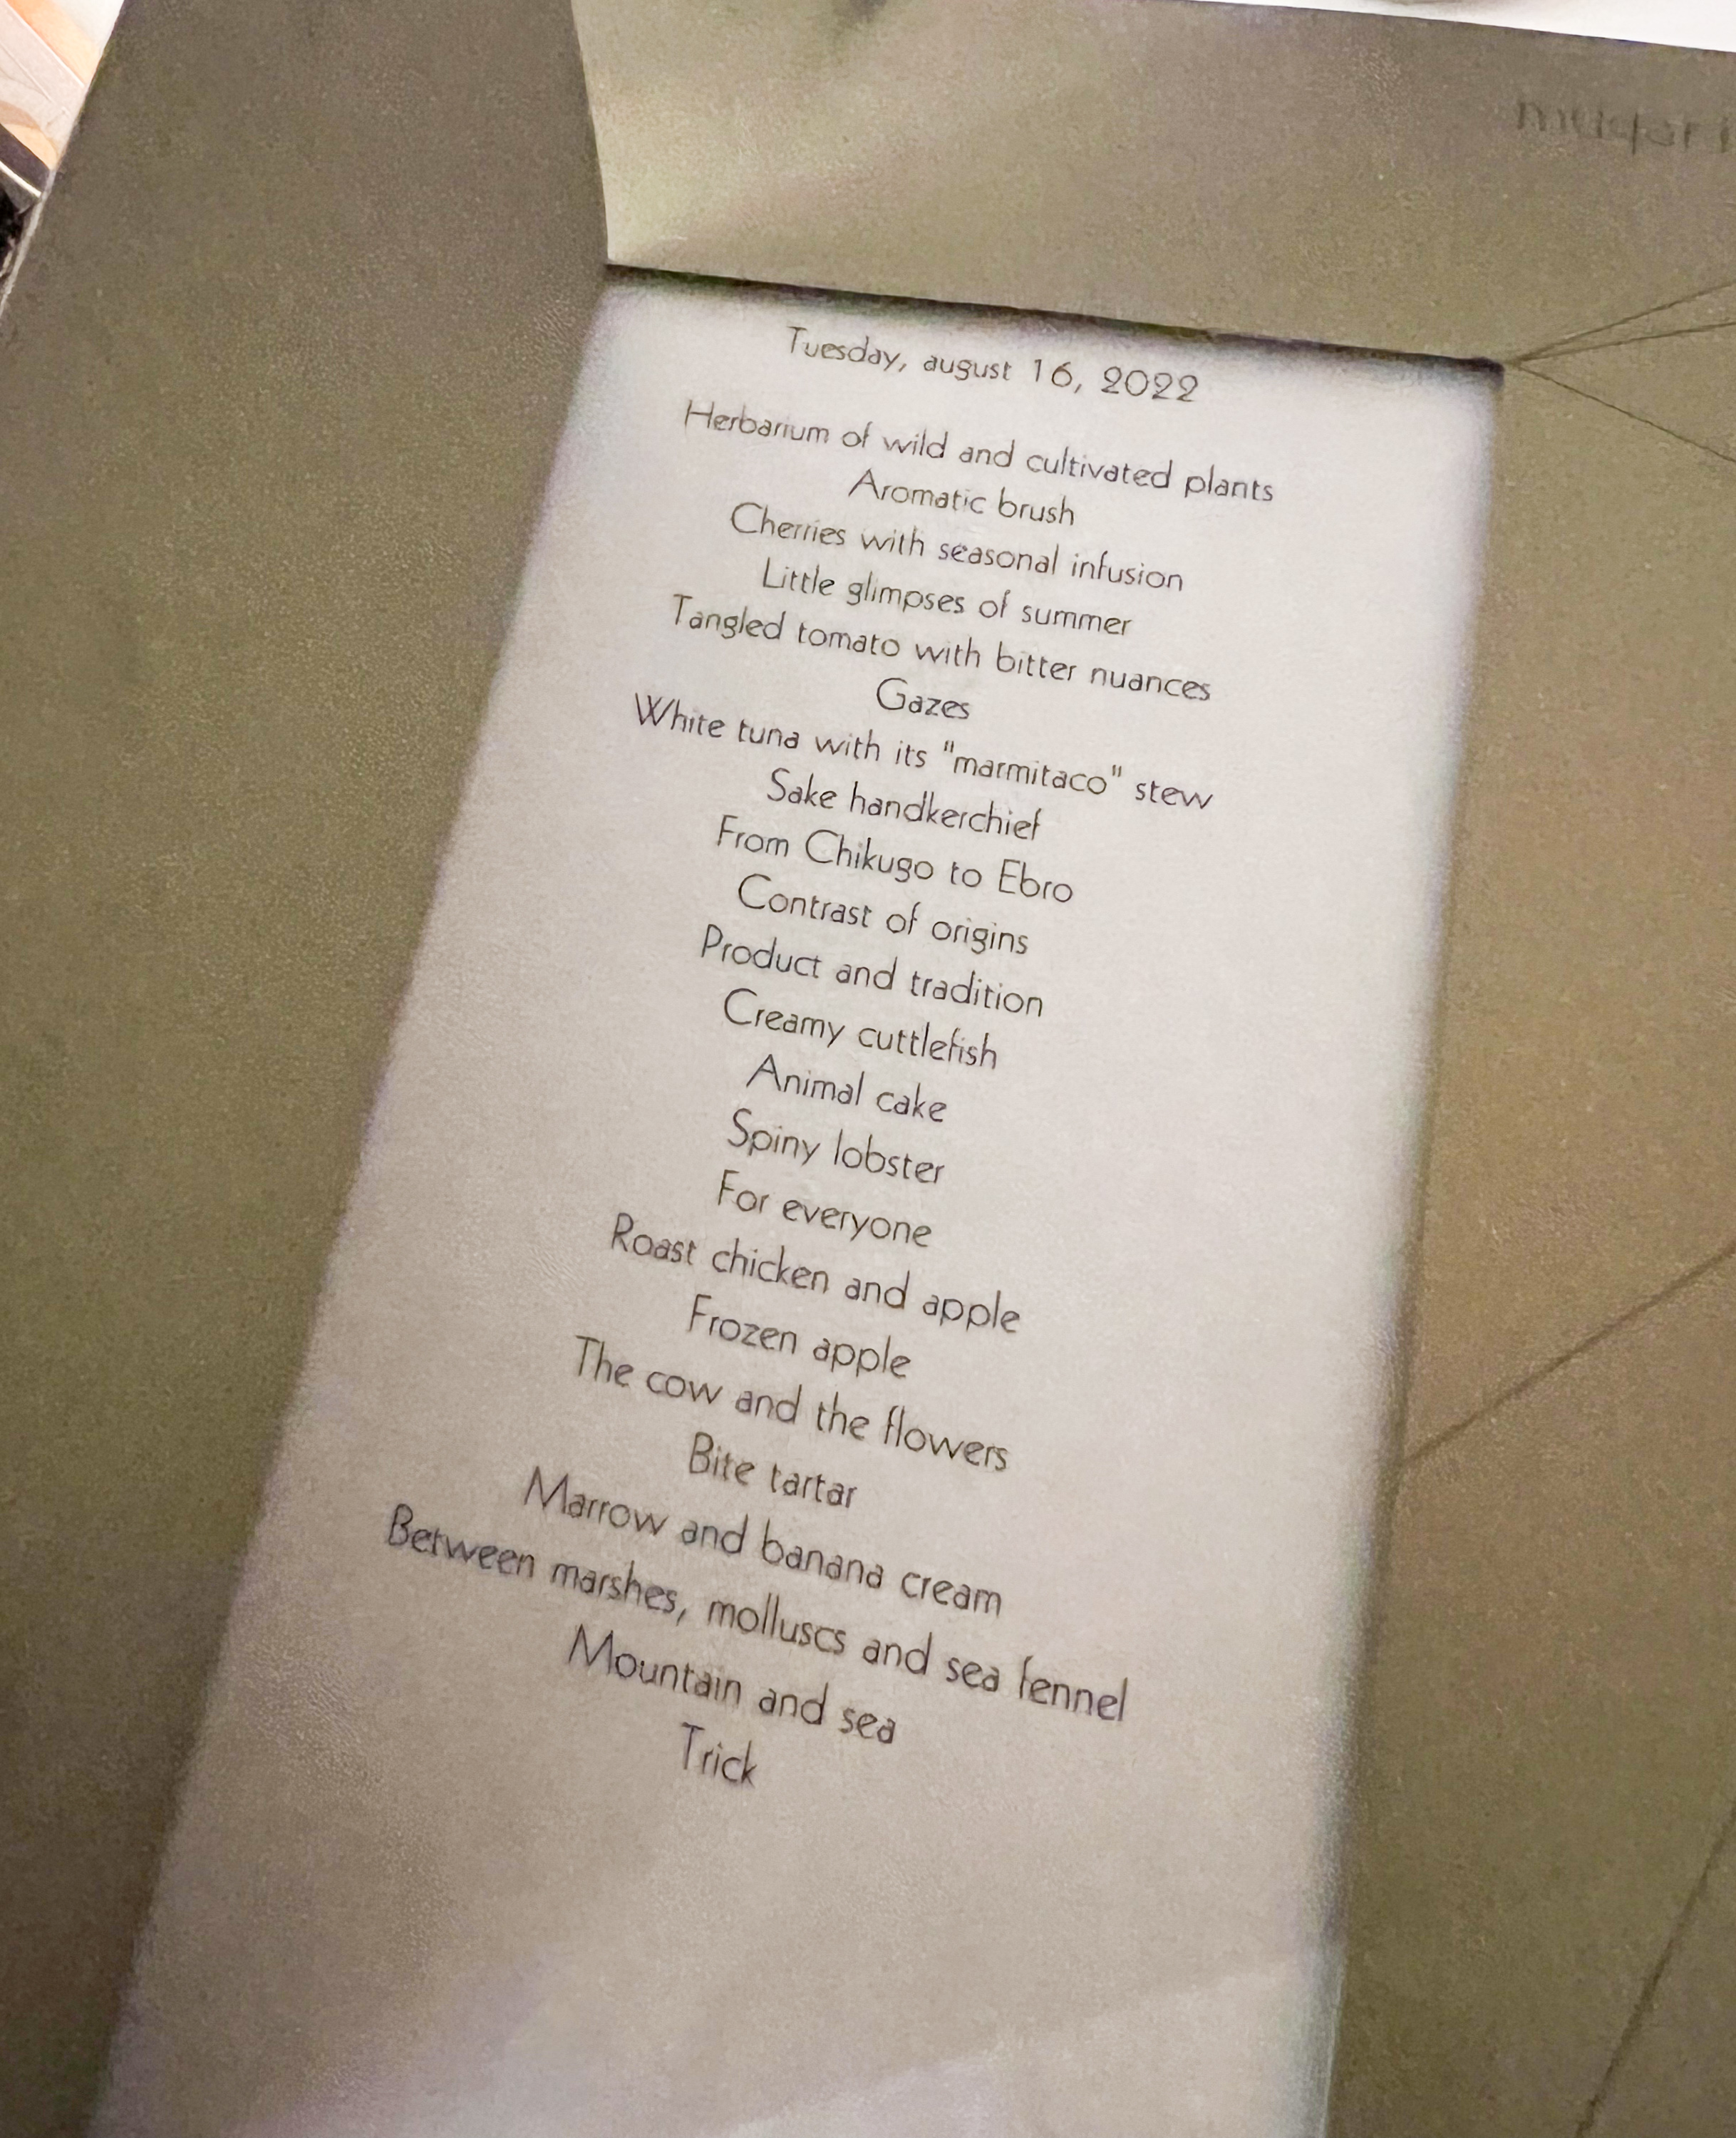 Tuesday, august 16, 2022
Herbarium of wild and cultivated plants
Aromatic brush
Cherries with seasonal infusion
Little glimpses of summer
Tangled tomato with bitter nuances
Gazes
White tuna with its "marmitaco" stew
Sake handkerchief
From Chikugo to Ebro
Contrast of origins
Product and tradition
Creamy cuttlefish
Animal cake
Spiny lobster
For everyone
Roast chicken and apple
Frozen apple
The cow and the flowers
Bite tartar
Marrow and banana cream
Between marshes, molluscs and sea fennel
Mountain and sea
Trick